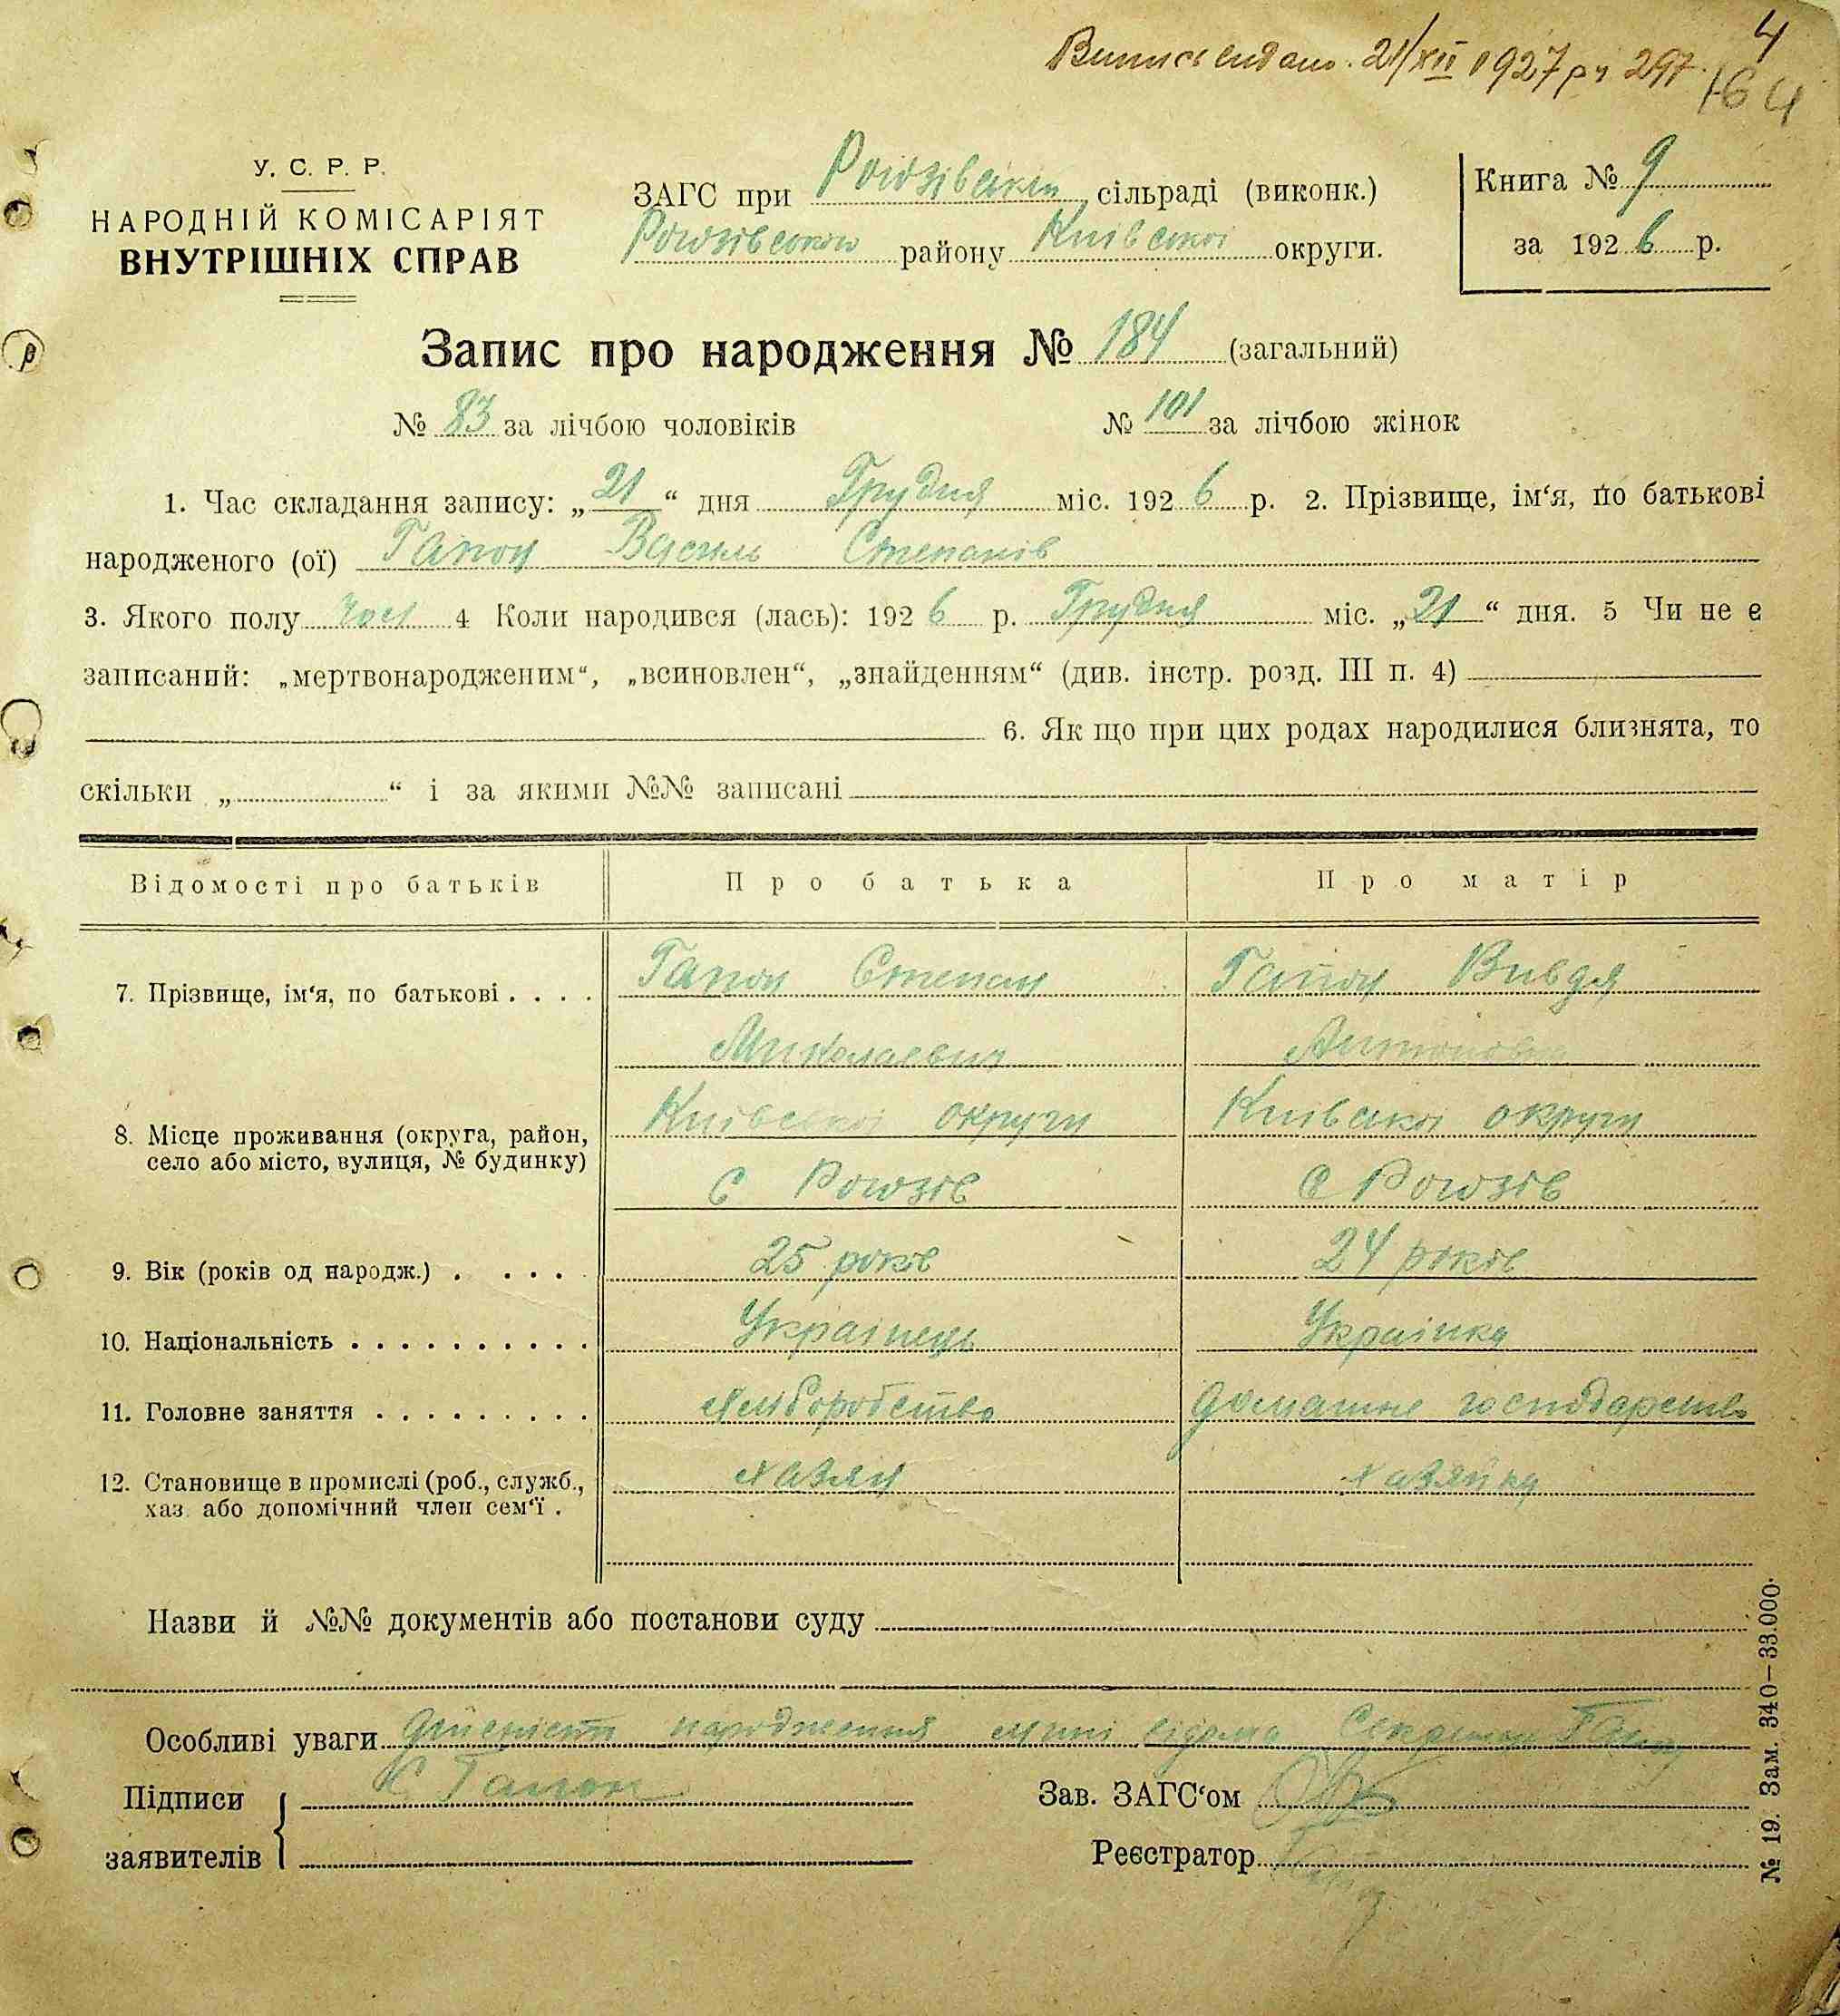 4
Виписс видано. 21/XII 1927 р 297.
164
У. С. Р. Р.
НАРОДНІЙ КОМІСАРІЯТ
ВНУТРІШНІХ СПРАВ
ЗАГС при Рогозівській сільраді (виконк.)
Рогозівського району Київської округи.
Книга № 9
за 1926 р.
Запис про народження № 184 (загальний)
№ 83 за лічбою чоловіків № 101 за лічбою жінок
1. Час складання запису: „21“ дня Грудня міс. 1926 р. 2. Прізвище, ім‘я, по батькові
народженого (ої) Гапон Василь Степанів
3. Якого полу чол 4 Коли народився (лась): 1926 р. Грудня міс. „21“ дня. 5 Чи не є
записаний: „мертвонародженим“, „всиновлен“, „знайденням“ (див. інстр. розд. III п. 4)
6. Як що при цих родах народилися близнята, то
скільки „ “ і за якими №№ записані
Відомості про батьків Про батька Про матір
7. Прізвище, ім‘я, по батькові . . . . Гапон Степан Гапон Вивдя
Миколаевич Антоновна
8. Місце проживання (округа, район, село або місто, вулиця, № будинку) Київської округи Київської округи
С Рогозів С Рогозів
9. Вік (років од народж.) . . . . 25 років 24 років
10. Національність . . . . . . . . . . Українець Українка
11. Головне заняття . . . . . . . . . Хліборобство домашне господарство
12. Становище в промислі (роб., служб., хаз. або допомічний член сем‘ї . Хазяин Хазяйка
Назви й №№ документів або постанови суду
Особливі уваги Дійсність народження мині відома Секретар Гапон
Підписи С Гапон Зав. ЗАГС‘ом
заявителів Реєстратор
№ 19. Зам. 340—33.000.